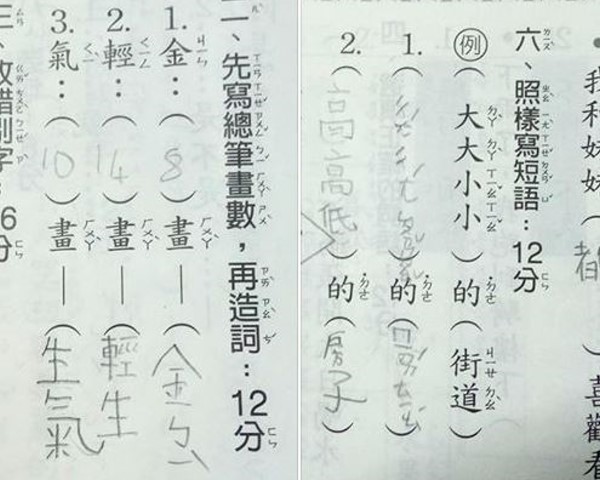 二、先寫總筆畫數，再造詞：12分
1. 金：（8）畫—（金）
2. 輕：（14）畫—（輕生）
3. 氣：（10）畫—（生氣）
三、改錯別字：6分
我和妹妹（都）喜歡看
六、照樣寫短語：12分
例（大大小小）的（街道）
1.（）的（）
2.（高高低）的（房子）